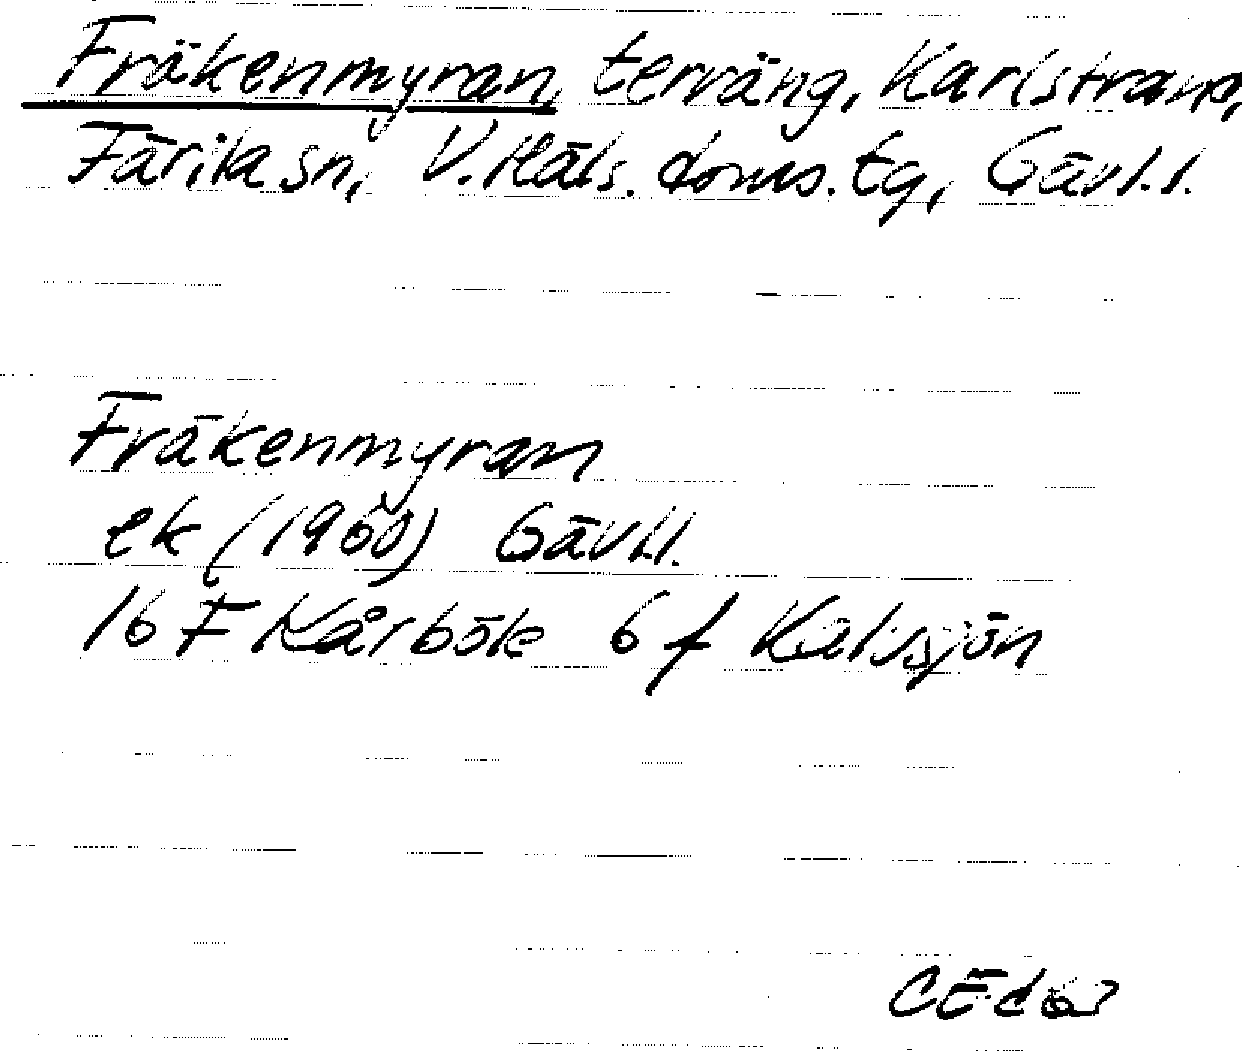 Fräkenmyran, terräng, Karlstrand,
Färila sn, V. Häls. doms. tg, Gävl. l.
Fräkenmyran
ek (1960) Gävl.l.
16 F Kårböle 6 f Kalvsjön